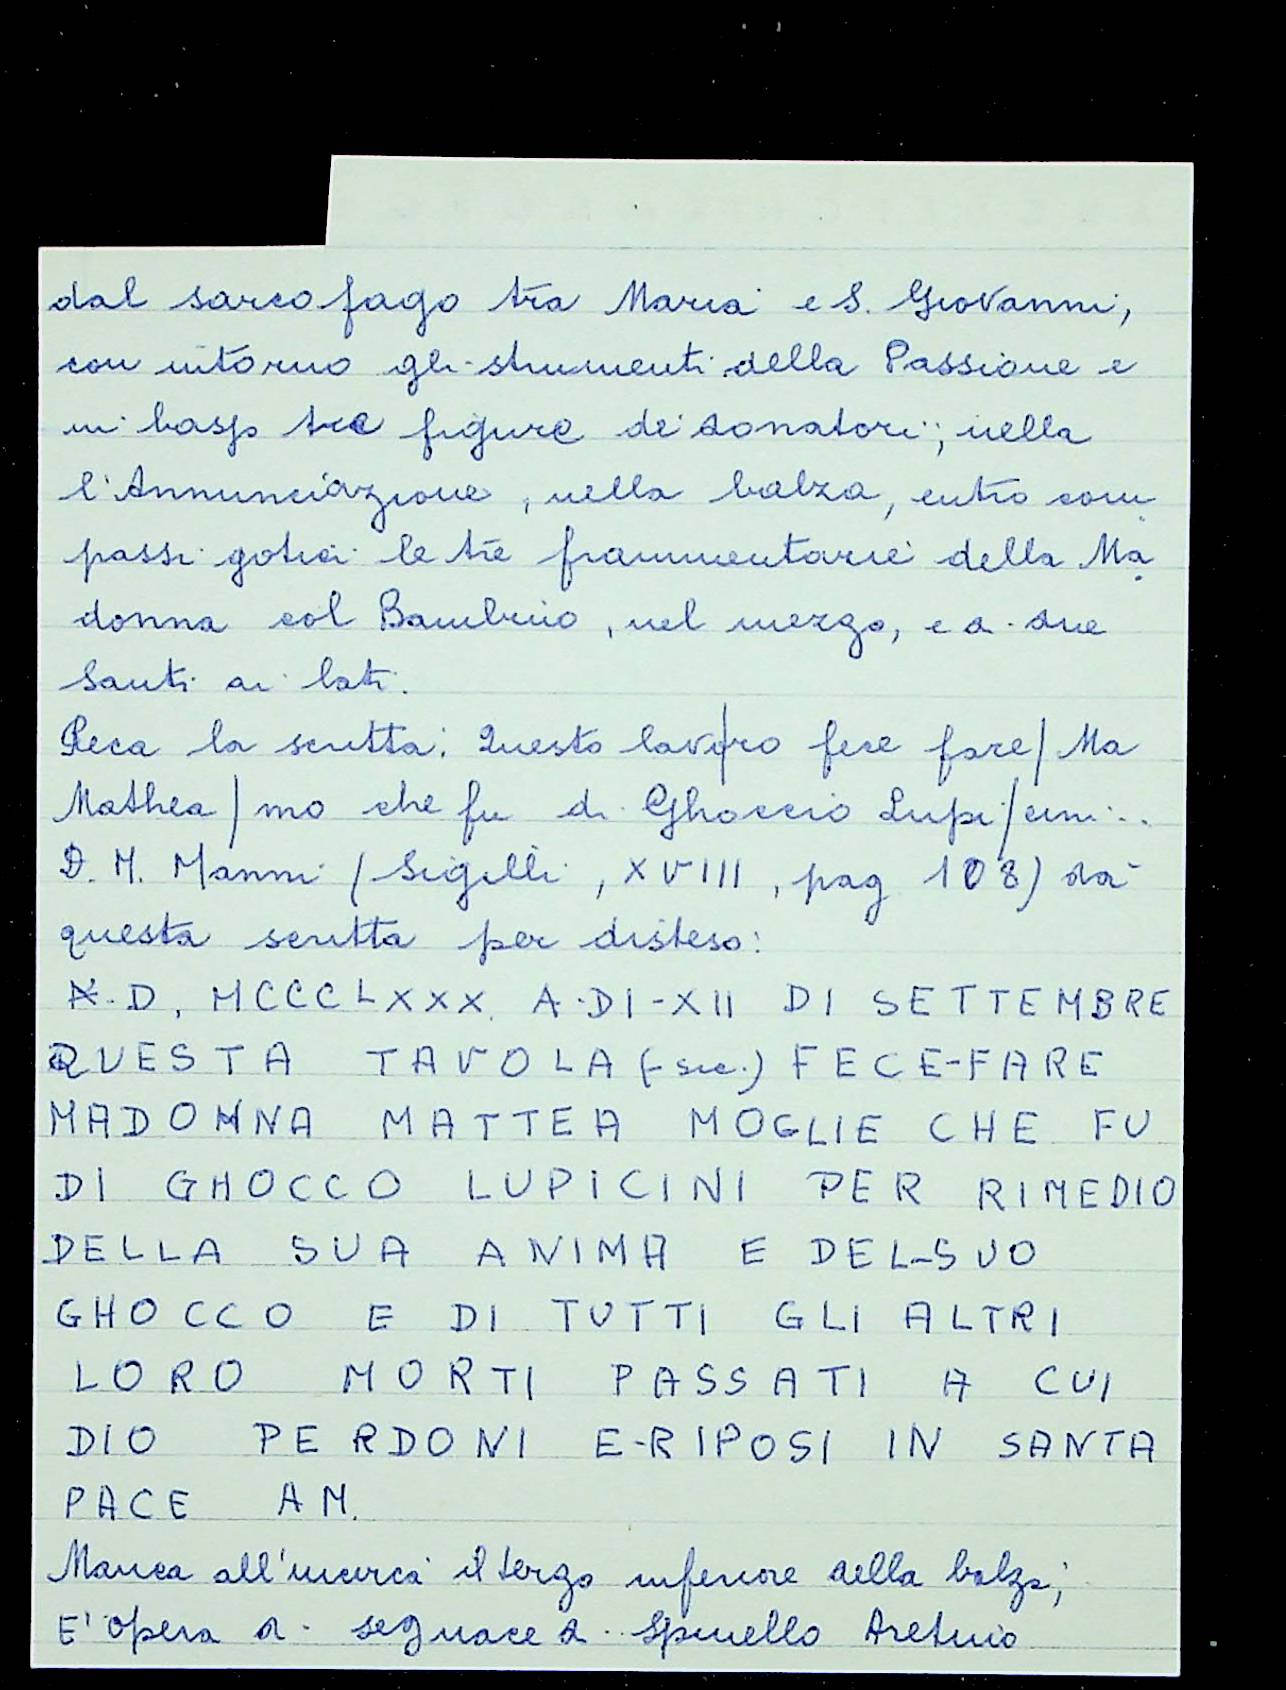 dal sarcofago tra Maria e S. Giovanni,
con intorno gli strumenti della Passione e
in basso tre figure de' donatori; nella
l'Annunciazione, nella balza, entro com
passi gotici le tre frammentarie della Ma
donna col Bambino, nel mezzo, e di due
Santi ai lati.
Reca la scritta: Questo lav/oro fece fare/Ma
Mathea/mo che fu di Ghoccio Lupi/cini...
D. M. Manni (Sigilli, XVIII, pag 108) dà
questa scritta per disteso:
A.D, MCCCLXXX. A-DI-XII DI SETTEMBRE
QUESTA TAVOLA (-sic.) FECE-FARE
MADONNA MATTEA MOGLIE CHE FU
DI GHOCCO LUPICINI PER RIMEDIO
DELLA SUA ANIMA E DEL-SUO
GHOCCO E DI TUTTI GLI ALTRI
LORO MORTI PASSATI A CUI
DIO PERDONI E-RIPOSI IN SANTA
PACE AM.
Manca all'incirca il terzo inferiore della balza;
E' opera di seguace di Spinello Aretino